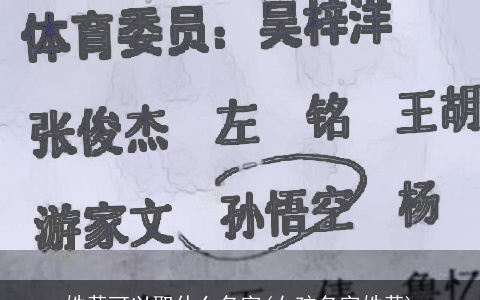 体育委员：吴梓洋
张俊杰 左 铭 王胡
游家文 孙悟空 杨
倩 鲁忆
可以取什么名字(女孩名字